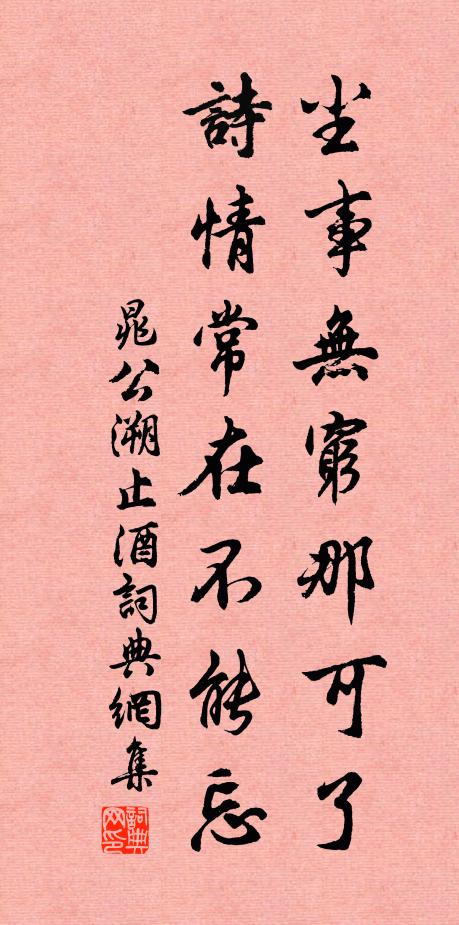 尘事無窮那可了
詩情常在不能忘
晁公溯止酒詞典網集
詞典
网印